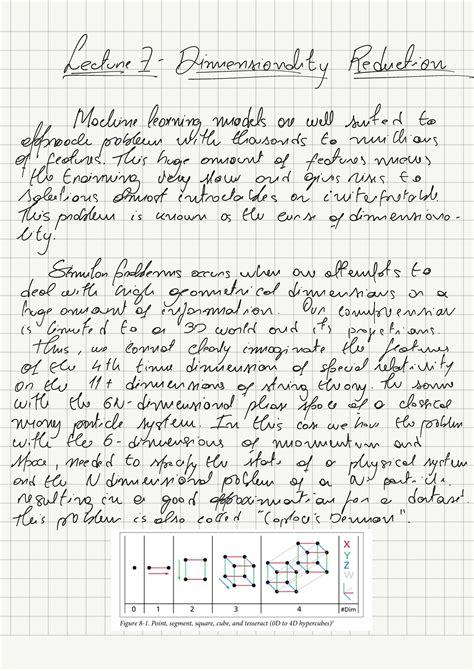 Lecture 7 - Dimensionality Reduction
Machine learning models are well suited to
approach problem with thousands to millions
of features. This huge amount of features makes
the training very slow and gives rises to
solutions almost intractables or uninterpretable.
This problem is known as the curse of dimensiona-
lity.
Similar problems occurs when one attempts to
deal with high geometrical dimensions or a
huge amount of information. Our comprehension
is limited to a 3D world and its projections.
Thus, we cannot clearly imaginate the features
of the 4th time dimension of special relativity
or the 11+ dimensions of string theory. The same
with the 6N-dimensional phase space of a classical
many particle system. In this case we have the problem
with the 6-dimensions of momentum and
space, needed to specify the state of a physical system
and the N dimensional problem of a particle
resulting in a good approximation for a dataset.
This problem is also called "Laplace's Demon".
X
Y
Z
W
0 1 2 3 4 #Dim
Figure 8-1. Point, segment, square, cube, and tesseract (0D to 4D hypercubes)